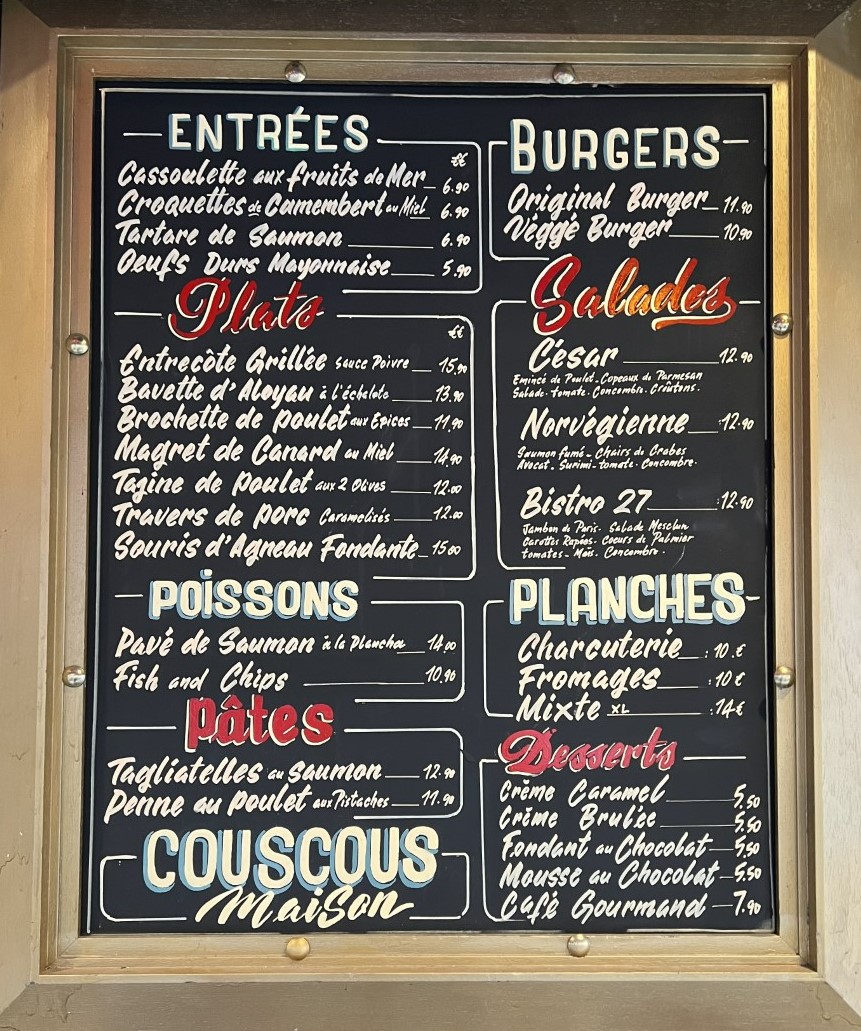 ENTRÉES
€€
Cassoulette aux fruits de Mer 6.90
Croquettes de Camembert au Miel 6.90
Tartare de Saumon 6.90
Oeufs Durs Mayonnaise 5.90
Plats
€€
Entrecôte Grillée Sauce Poivre 15.90
Bavette d'Aloyau à l'échalote 13.90
Brochette de poulet aux Epices 11.90
Magret de Canard au Miel 14.90
Tagine de poulet aux 2 Olives 12.00
Travers de porc Caramelisés 12.00
Souris d'Agneau Fondante 15.00
POISSONS
Pavé de Saumon à la Plancha 14.00
Fish and Chips 10.90
Pâtes
Tagliatelles au Saumon 12.90
Penne au poulet aux Pistaches 11.90
COUSCOUS
Maison
BURGERS
Original Burger 11.90
Véggé Burger 10.90
Salades
César 12.90
Emincé de Poulet - Copeaux de Parmesan
Salade. tomate. Concombre. Croûtons.
Norvégienne 12.90
Saumon fumé - Chairs de Crabes
Avocat. Surimi. tomate. Concombre.
Bistro 27 :12.90
Jambon de Paris. Salade Mesclun
Carottes Rapées. Coeurs de Palmier
tomates - Maïs. Concombre.
PLANCHES
Charcuterie : 10.€
Fromages :10€
Mixte XL :14€
Desserts
Crème Caramel 5.50
Crème Brulée 5.50
Fondant au Chocolat 5.50
Mousse au Chocolat 5.50
Café Gourmand 7.90